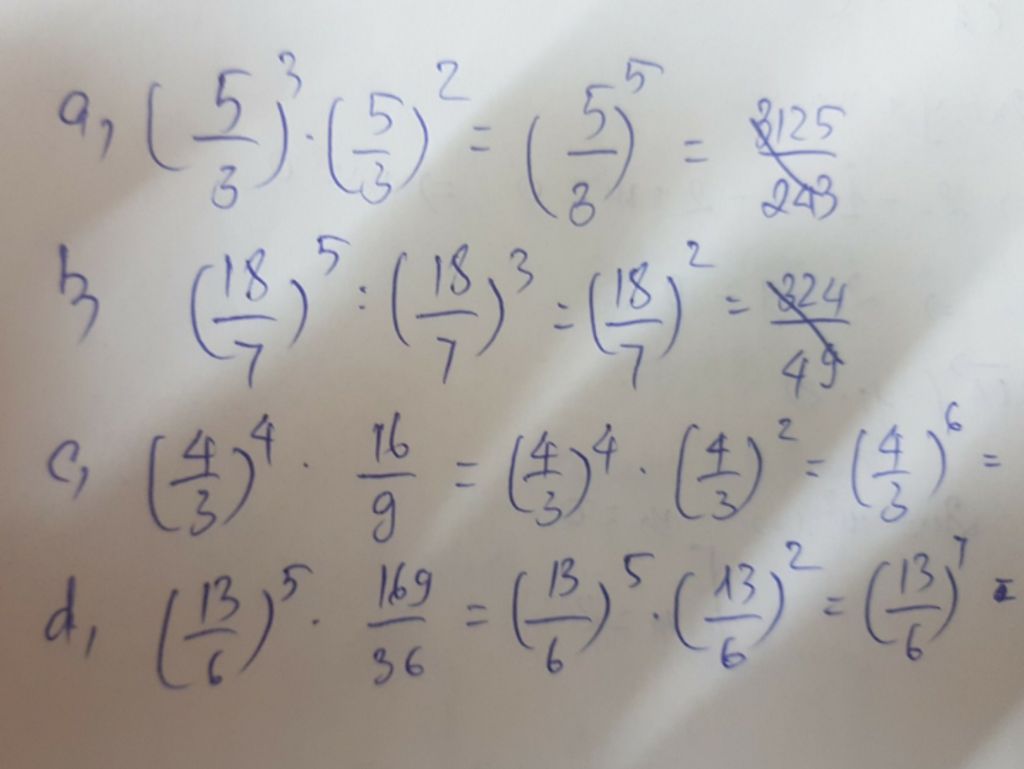 a, (5/3)^3 · (5/3)^2 = (5/3)^5 = 3125/243
b, (18/7)^5 : (18/7)^3 = (18/7)^2 = 324/49
c, (4/3)^4 · 16/9 = (4/3)^4 · (4/3)^2 = (4/3)^6 =
d, (13/6)^5 · 169/36 = (13/6)^5 · (13/6)^2 = (13/6)^7 =